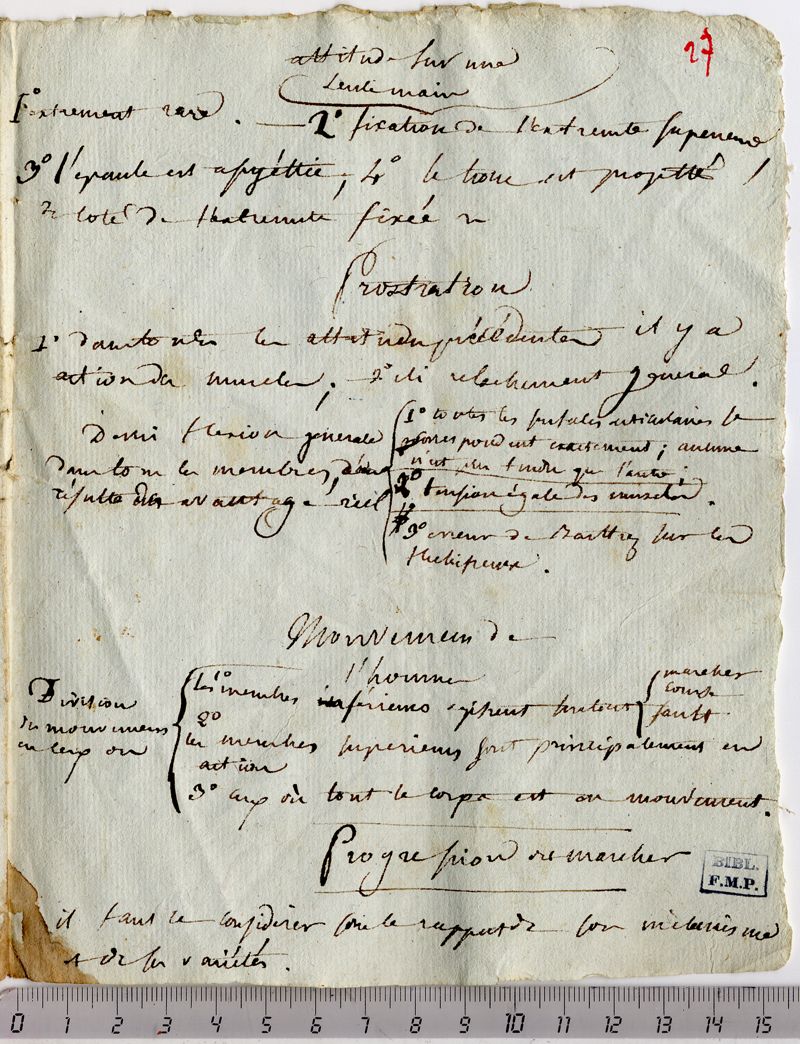 27
attitude sur une
seule main
1° extrement rare. — 2° fixation de l'extremité superieure
3° l'epaule est assujéttie; 4° le tronc est projetté
du coté de l'extremité fixée
Prostration
1° dans toutes les attitudes précédentes il y a
action des muscles; 2° ici relachement general.
Demi flexion générale
dans tous les membres,
résulte avantage réel
1° toutes les surfaces articulaires se
correspondent exactement; aucune
n'est plus tendu que l'autre.
2° tension égale des muscles.
3° erreur de Barthez sur les
flechisseurs.
Mouvemens de
l'homme
Division
des mouvemens
en ceux où
1°
les membres inférieurs agissent surtout
marcher
course
sault
2°
les membres superieurs sont principalement en
action
3° ceux où tout le corps est en mouvement.
Progression ou marcher
BIBL.
F.M.P.
il faut le considérer sous le rapport de son mécanisme
et de ses variétés.
0 1 2 3 4 5 6 7 8 9 10 11 12 13 14 15